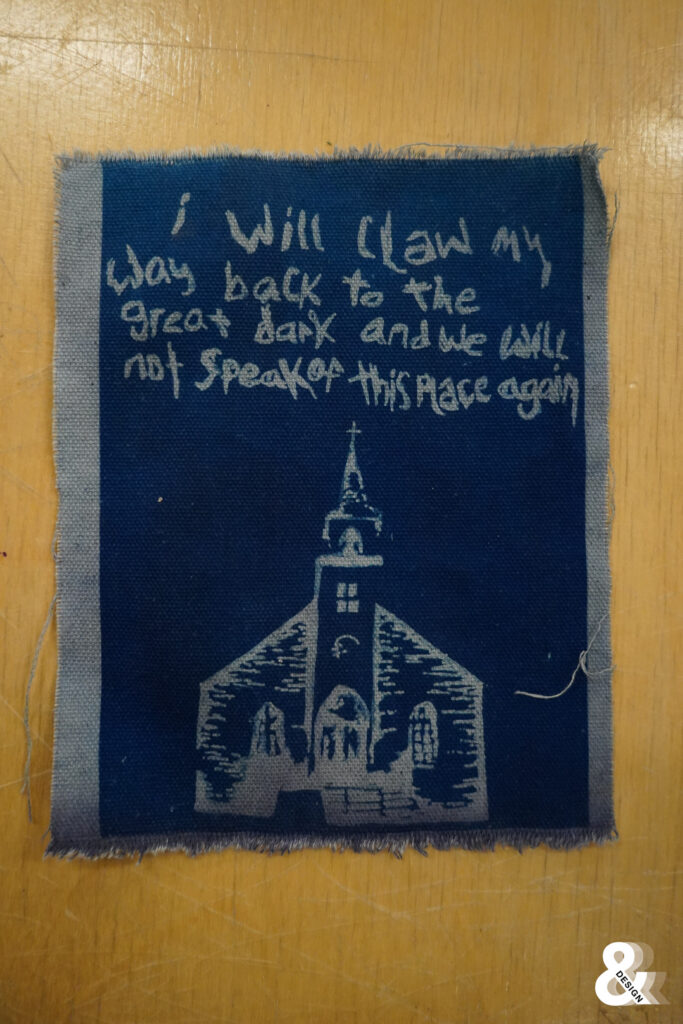 i will claw my
way back to the
great dark and we will
not speak of this place again
& DESIGN